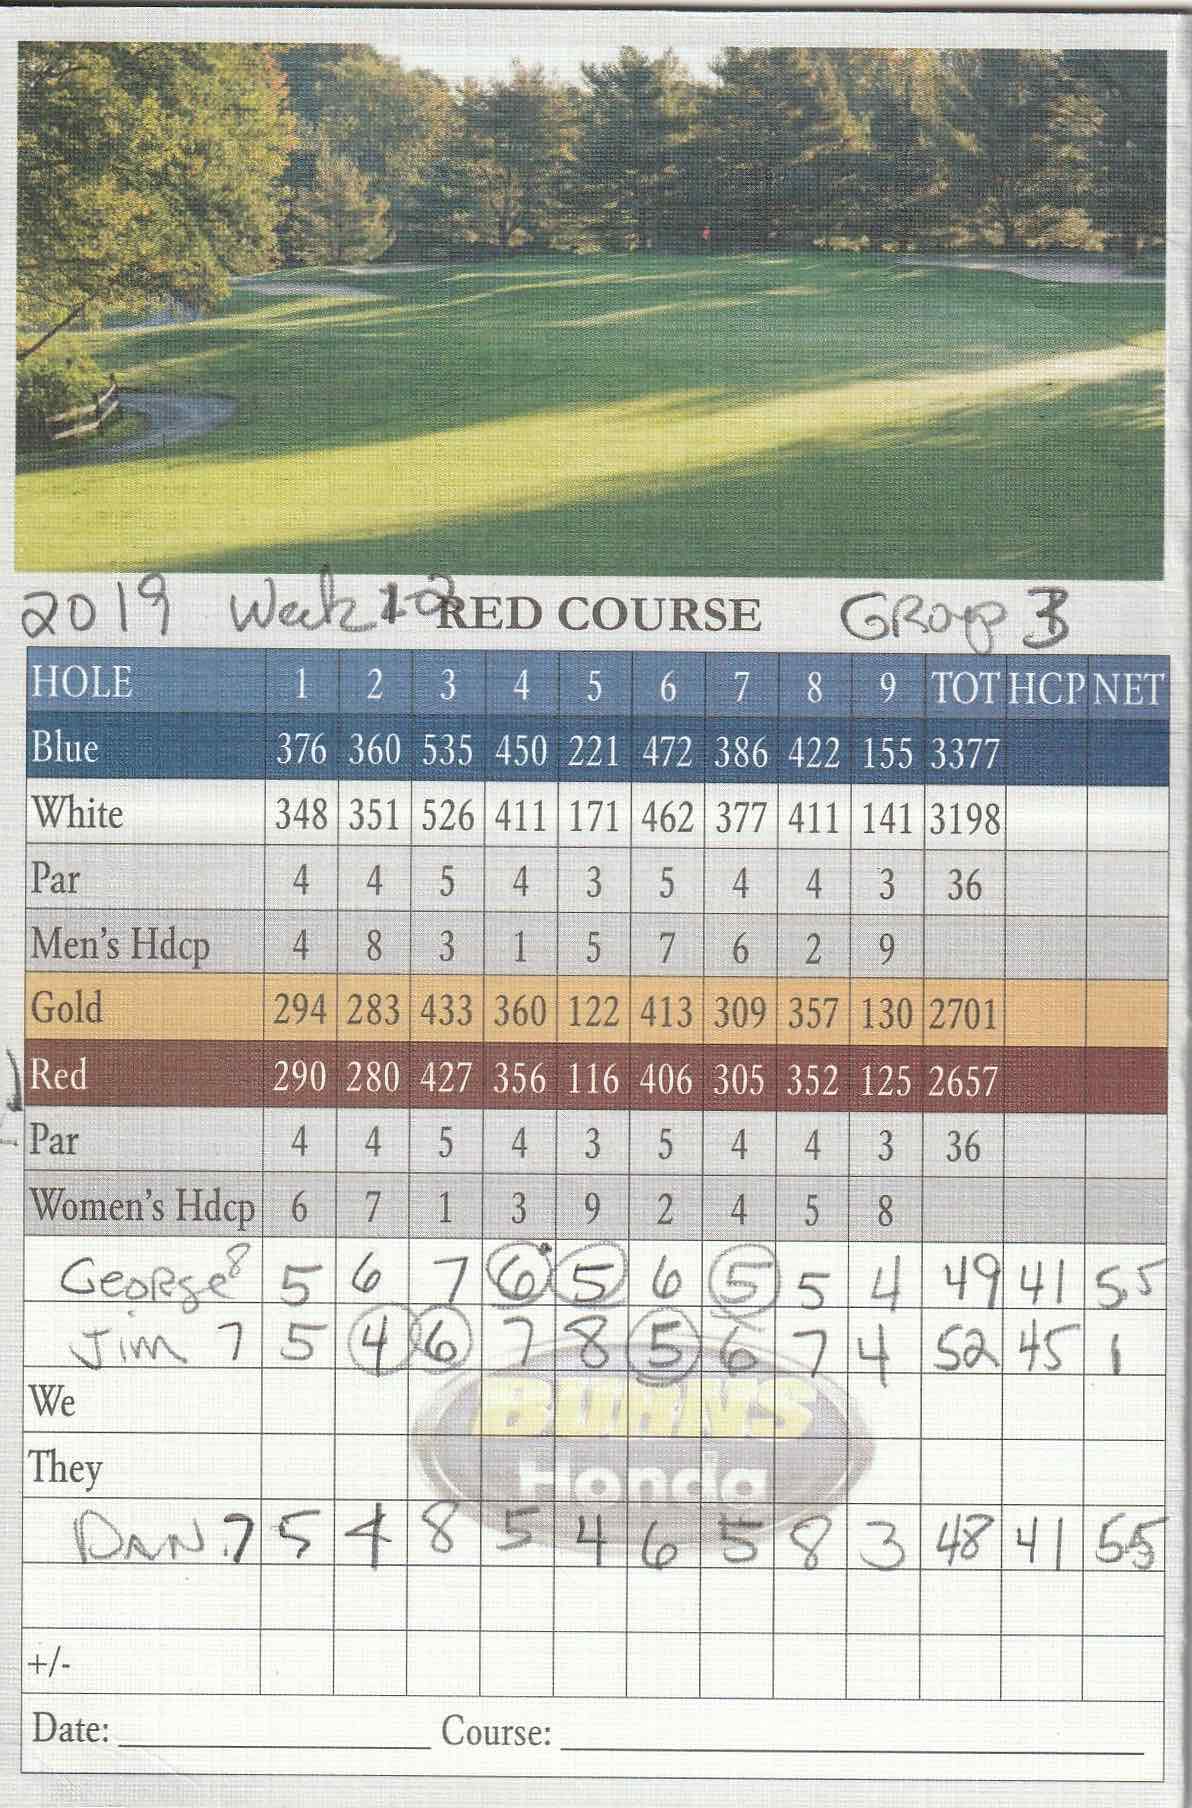 2019 Week 12 RED COURSE Group 3
HOLE 1 2 3 4 5 6 7 8 9 TOT HCP NET
Blue 376 360 535 450 221 472 386 422 155 3377
White 348 351 526 411 171 462 377 411 141 3198
Par 4 4 5 4 3 5 4 4 3 36
Men's Hdcp 4 8 3 1 5 7 6 2 9
Gold 294 283 433 360 122 413 309 357 130 2701
Red 290 280 427 356 116 406 305 352 125 2657
Par 4 4 5 4 3 5 4 4 3 36
Women's Hdcp 6 7 1 3 9 2 4 5 8
George 8 5 6 7 6 5 6 5 5 4 49 41 5.5
Jim 7 5 4 6 7 8 5 6 7 4 52 45 1
We
BURNS
They
Honda
DAN 7 5 4 8 5 4 6 5 8 3 48 41 5.5
+/-
Date: Course: